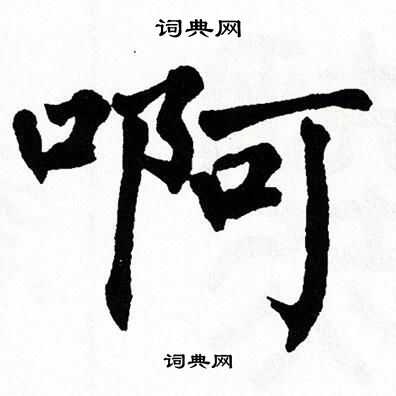 词典网
啊
词典网